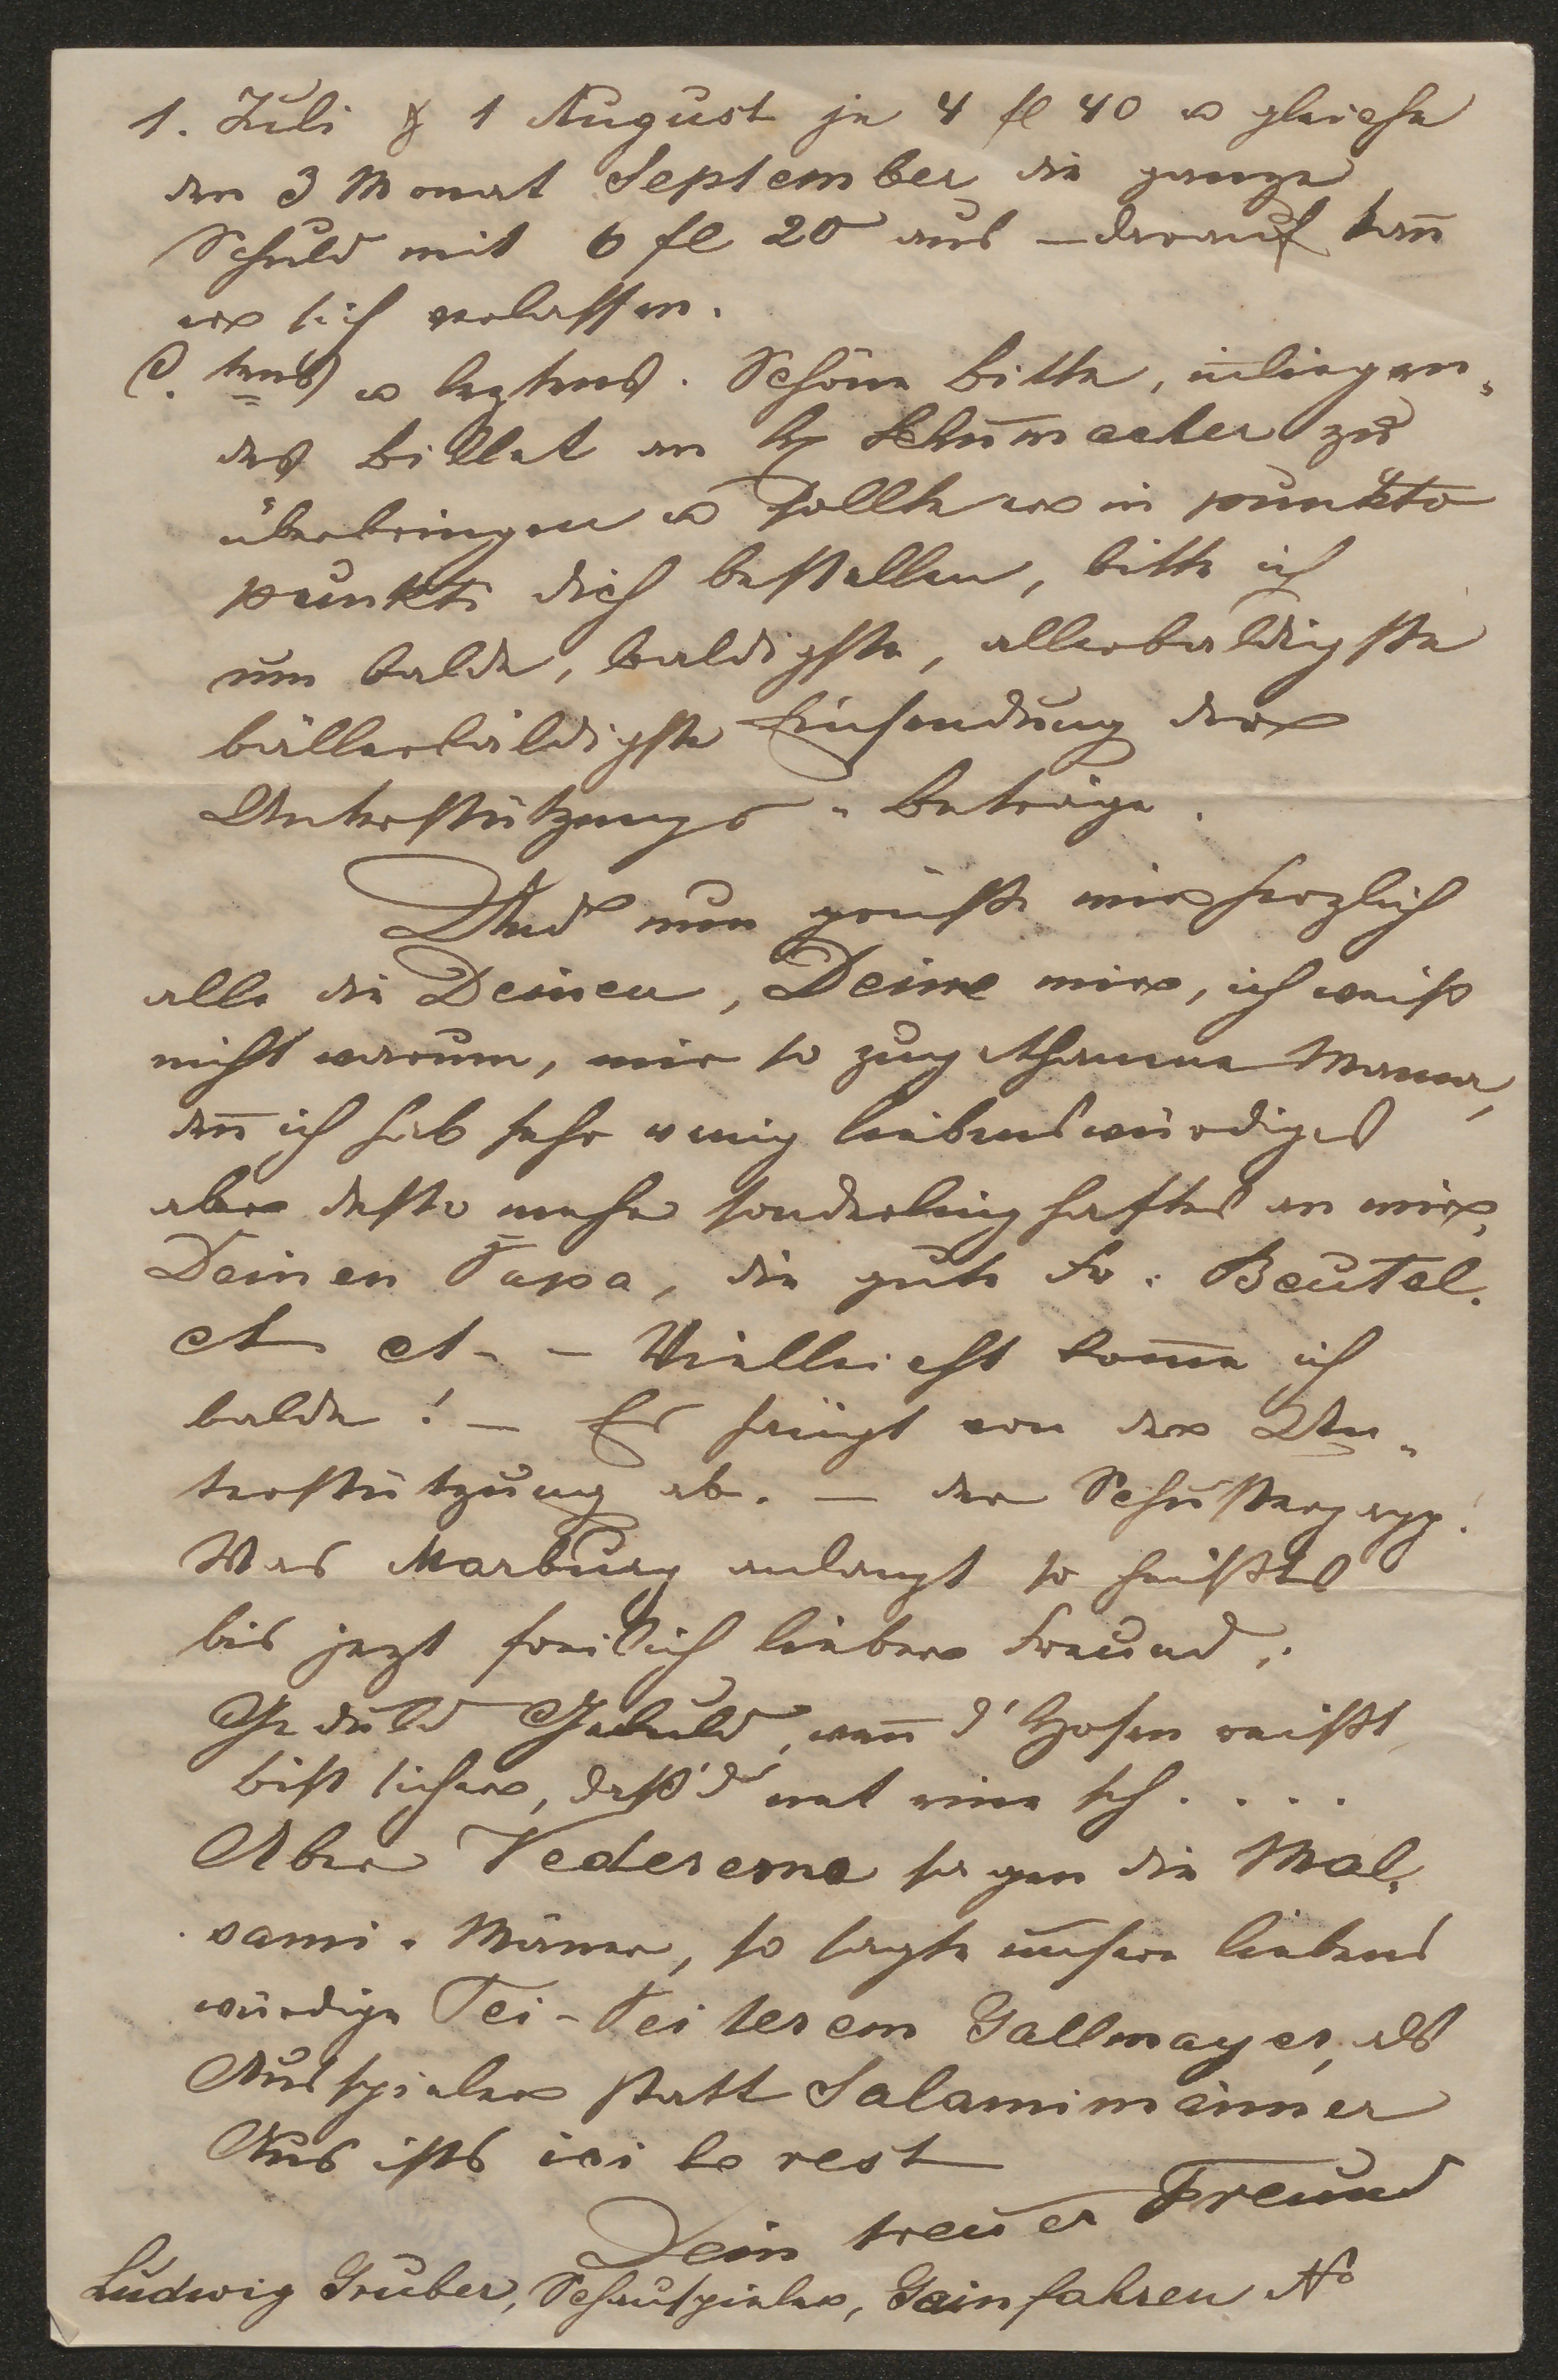 1. Juli & 1 August je 4 fl 40 u gleiche
den 3 Monat September die ganze
Schuld mit 6 fl 20 aus – darauf kan̄
er sich verlassen.
tens u leztens. Schöne Bitte, inliegen„
des Billet an H Schumacher zu
überbringen u sollte er in punkto
punkti dich bestellen, bitte ich
um balde, baldigste, allerbaldigste
bällerbäldigste Einsendung der
Unterstützungs„Beträge.
Und nun grüße mir herzlich
alle die Deinen, Deine mir, ich weiß
nicht warum, mir so zugethane Mama,
den̄ ich hab sehr wenig liebenswürdiges
aber desto mehr sonderlinghaftes an mir,
Deinen Papa, die gute Fr. Beutel.
et et – – Vielleicht kom̄e ich
balde! – Es hängt von der Un„
terstützung ab. – der Schusterpapp.
Was Marburg anlangt so heißt's
bis jezt freilich lieber Freund:
Geduld Geduld, wen̄ d' Hosen reißt
bist sicher, daß'd net eine sch....
Aber Vederemo sagen die Mal„
sami„Mäner, so sagte unsere liebens
würdige Tei-Teiterem Gallmayer, als
Ausspieler statt Salamimänner
Aus ists ici le rest
Dein treuer Freund
Ludwig Gruber, Schauspieler, Gainfahren No